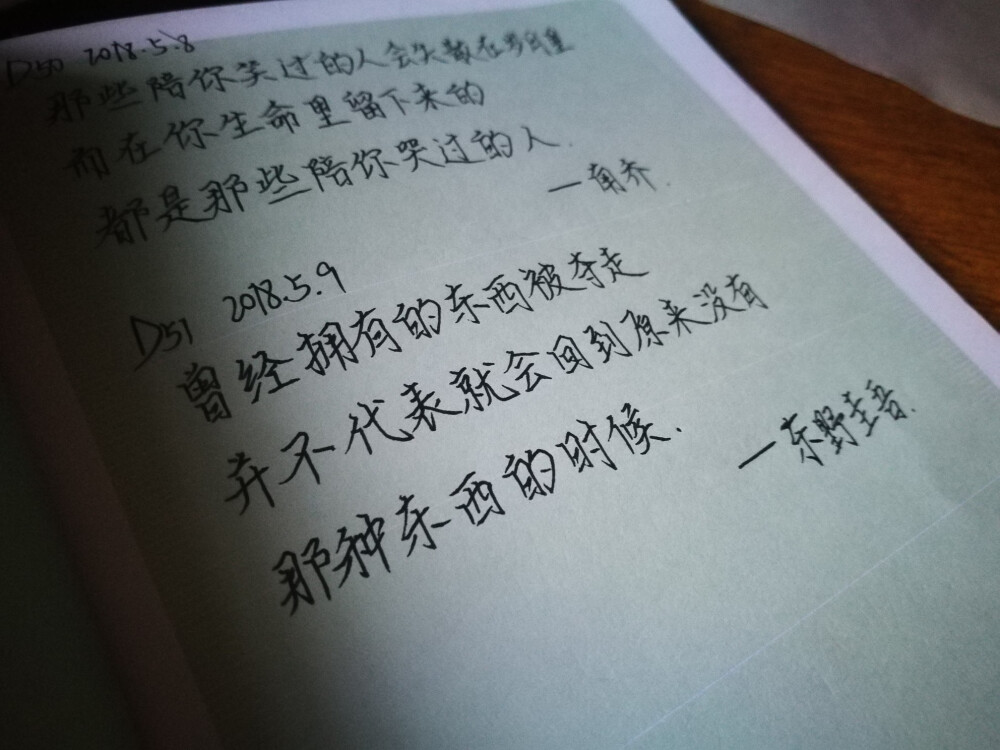 D50 2018.5.8
那些陪你笑过的人会失散在
而在你生命里留下来的
都是那些陪你哭过的人.
—南乔.
D51 2018.5.9
曾经拥有的东西被夺走
并不代表就会回到原来没有
那种东西的时候.
—东野圭吾.